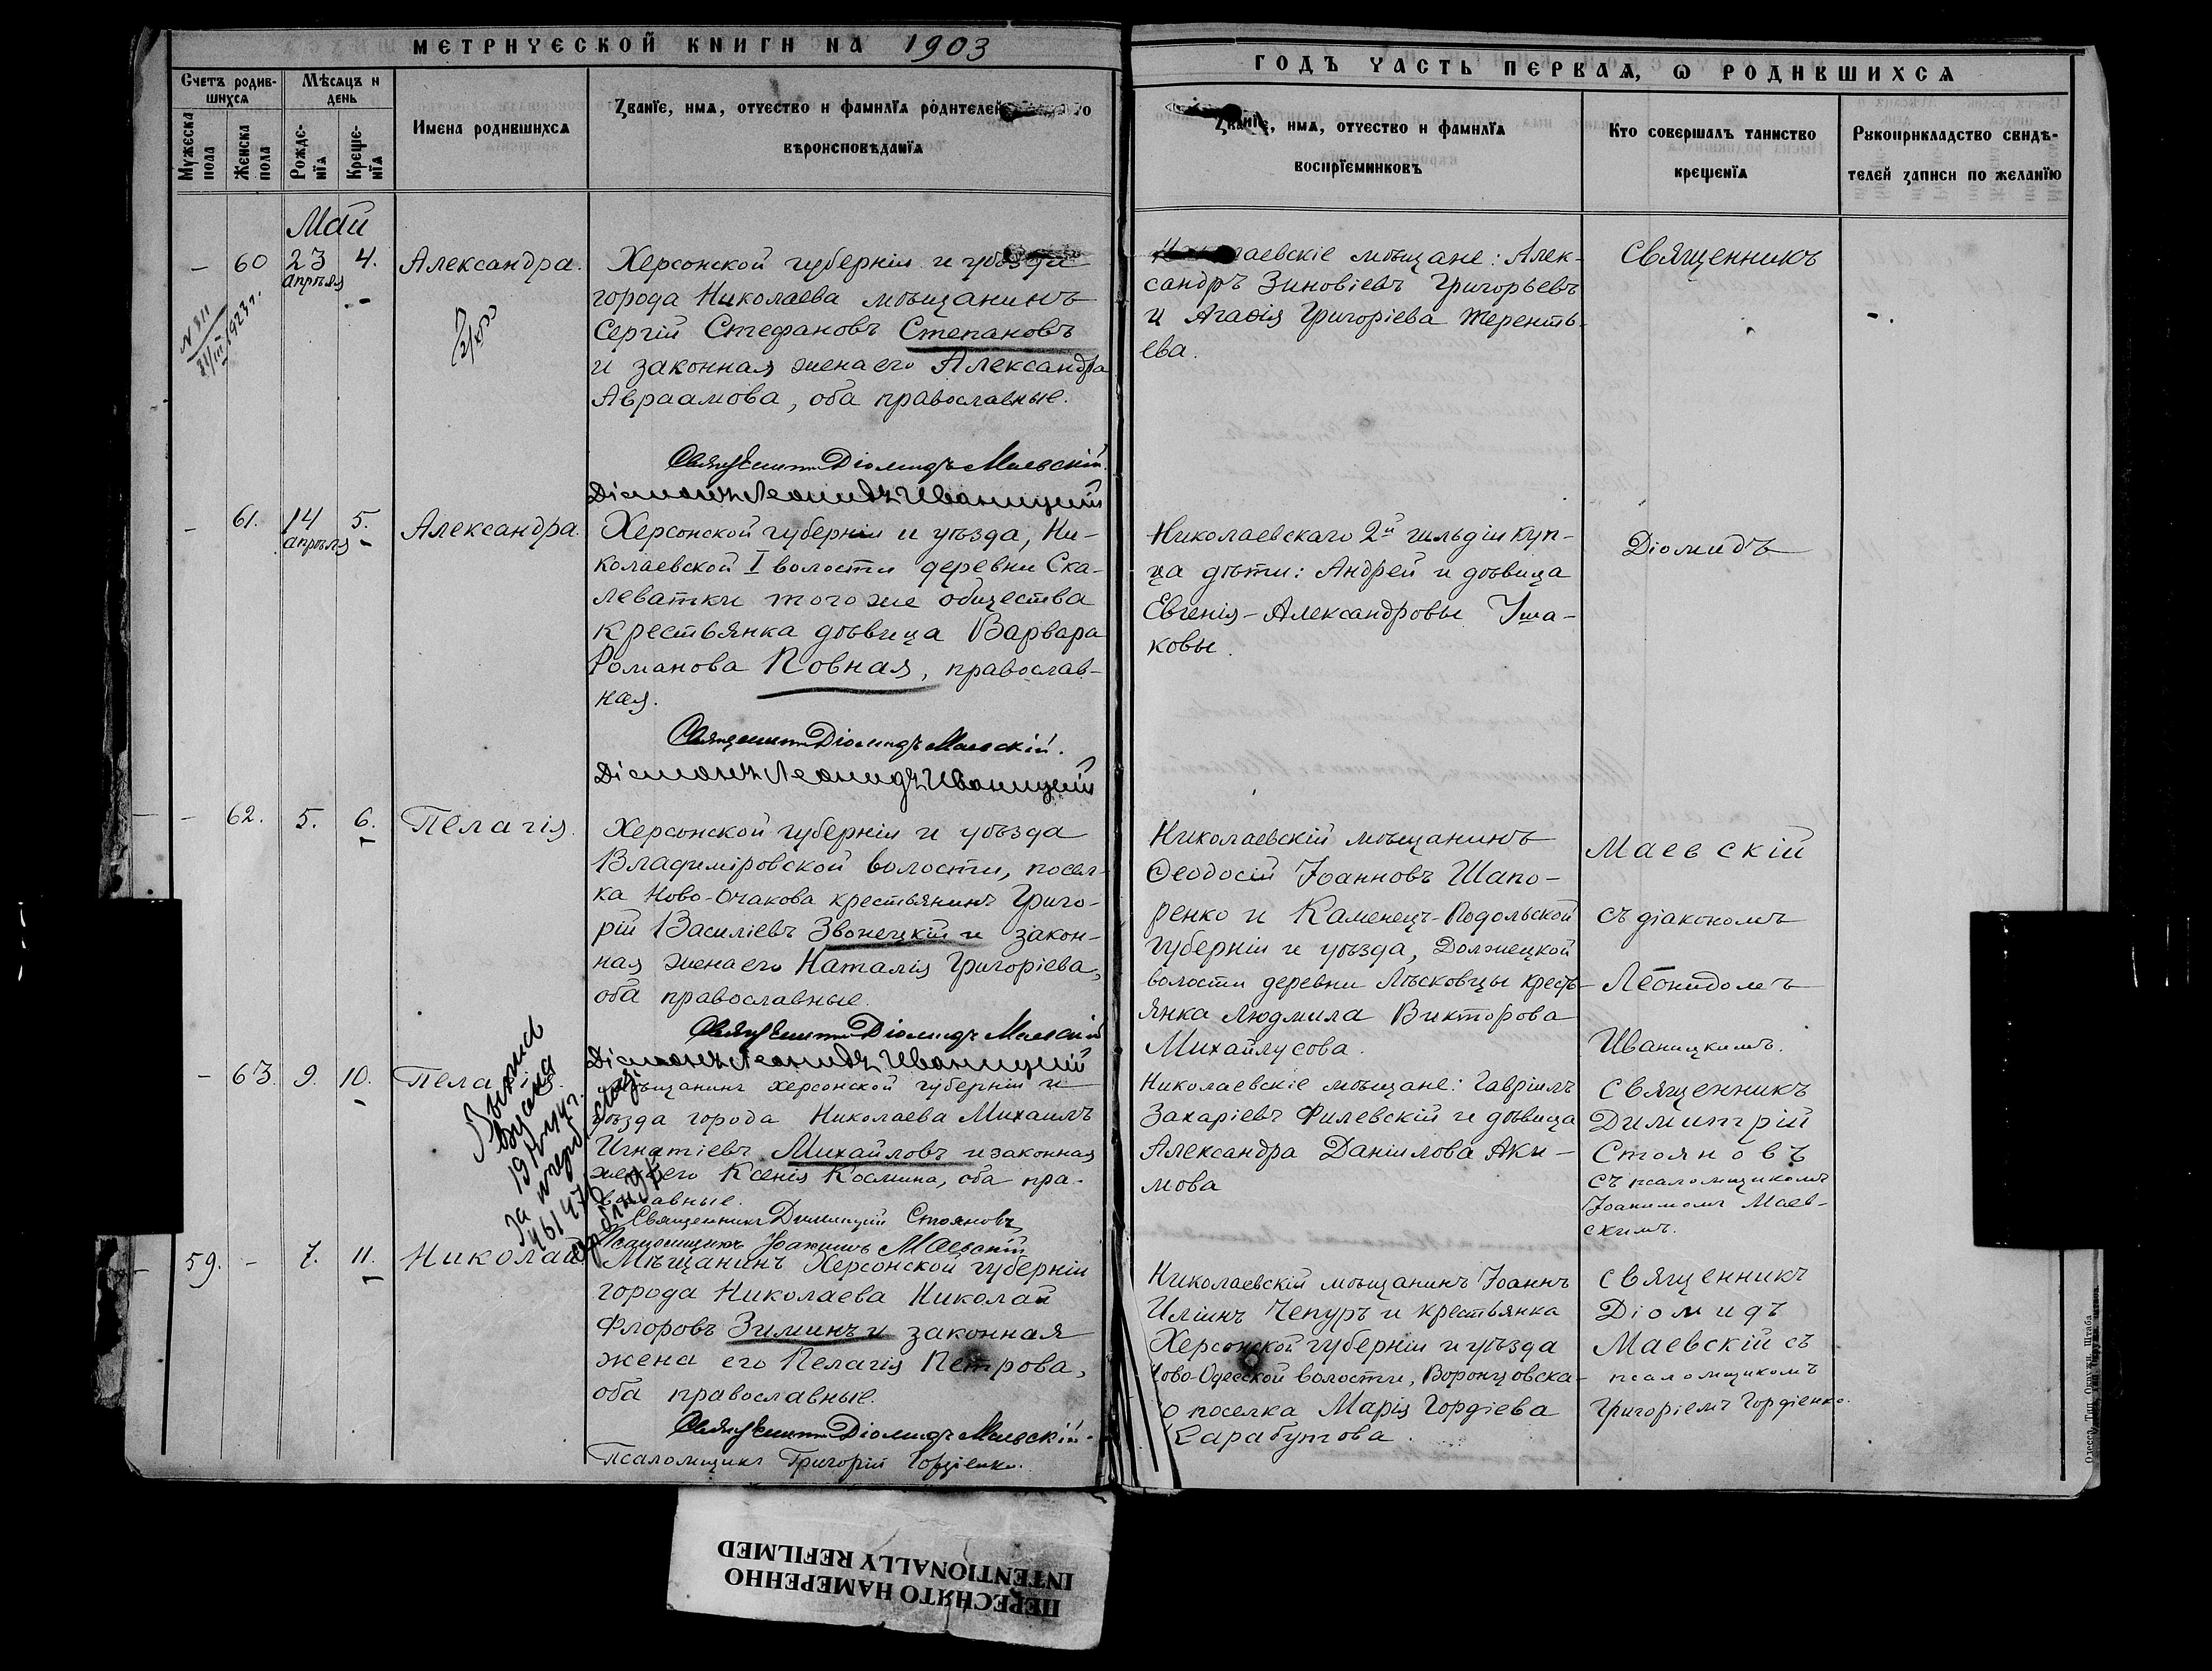 МЕТРИЧЕСКОЙ КНИГИ НА 1903
Счетъ родив-
шихся
Мѣсяцъ и
день
Мужеска
пола
Женска
пола
Рожде-
нія
Креще-
нія
Имена родившихся
Званіе, имя, отчество и фамилія родителей
вѣроисповѣданія
Май
— 60 23 4. Александра.
апрѣля
Херсонской губерніи и уѣзда
города Николаева мѣщанинъ
Сергій Стефановъ Степановъ
и законная жена его Александра
Авраамова, оба православные.
Священникъ Діомидъ Маевскій.
Діаконъ Леонидъ Иваницкій
— 61. 14 5. Александра.
апрѣля
Херсонской губерніи и уѣзда, Ни-
колаевской I волости деревни Ска-
леватки того же общества
крестьянка дѣвица Варвара
Романова Повная, православ-
ная.
Священникъ Діомидъ Маевскій.
Діаконъ Леонидъ Иваницкій
— 62. 5. 6. Пелагія.
Херсонской губерніи и уѣзда
Владиміровской волости, посел-
ка Ново-Очакова крестьянинъ Григо-
рій Василіевъ Звонецкій и закон-
ная жена его Наталія Григоріева,
оба православные.
Священникъ Діомидъ Маевскій
Діаконъ Леонидъ Иваницкій
— 63. 9. 10. Пелагія.
мѣщанинъ Херсонской губерніи и
уѣзда города Николаева Михаилъ
Игнатіевъ Михайловъ и законная
жена его Ксенія Космина, оба пра-
вославные.
Священникъ Димитрій Стояновъ
Псаломщикъ Іоакимъ Маевскій
59. — 7. 11. Николай
Мѣщанинъ Херсонской губерніи
города Николаева Николай
Флоровъ Зиминъ и законная
жена его Пелагія Петрова,
оба православные.
Священникъ Діомидъ Маевскій.
Псаломщикъ Григорій Гордіенко.
ГОДЪ ЧАСТЬ ПЕРВАЯ, Ѡ РОДИВШИХСЯ
Званіе, имя, отчество и фамилія
воспріемниковъ
Кто совершалъ таинство
крещенія
Рукоприкладство свидѣ-
телей записи по желанію
Николаевскіе мѣщане: Алек-
сандръ Зиновіевъ Григорьевъ
и Агаѳія Григоріева Теренть-
ева.
Николаевскаго 2й гильдіи куп-
ца дѣти: Андрей и дѣвица
Евгенія-Александровы Уша-
ковы.
Николаевскій мѣщанинъ
Ѳеодосій Іоанновъ Шапо-
ренко и Каменецъ-Подольской
губерніи и уѣзда, Должецкой
волости деревни Лѣсковцы кресть-
янка Людмила Викторова
Михайлусова.
Николаевскіе мѣщане: Гавріилъ
Захаріевъ Филевскій и дѣвица
Александра Даніилова Аки-
мова
Николаевскій мѣщанинъ Іоаннъ
Иліинъ Чепуръ и крестьянка
Херсонской губерніи и уѣзда
Ново-Одесской волости, Воронцовска-
го поселка Марія Гордіева
Сарабутова.
Священникъ
Діомидъ
Маевскій
съ діакономъ
Леонидомъ
Иваницкимъ.
Священникъ
Димитрій
Стояновъ
съ псаломщикомъ
Іоакимомъ Маев-
скимъ.
Священникъ
Діомидъ
Маевскій съ
псаломщикомъ
Григоріемъ Гордіенко.
ПЕРЕСНЯТО НАМЕРЕННО
INTENTIONALLY REFILMED